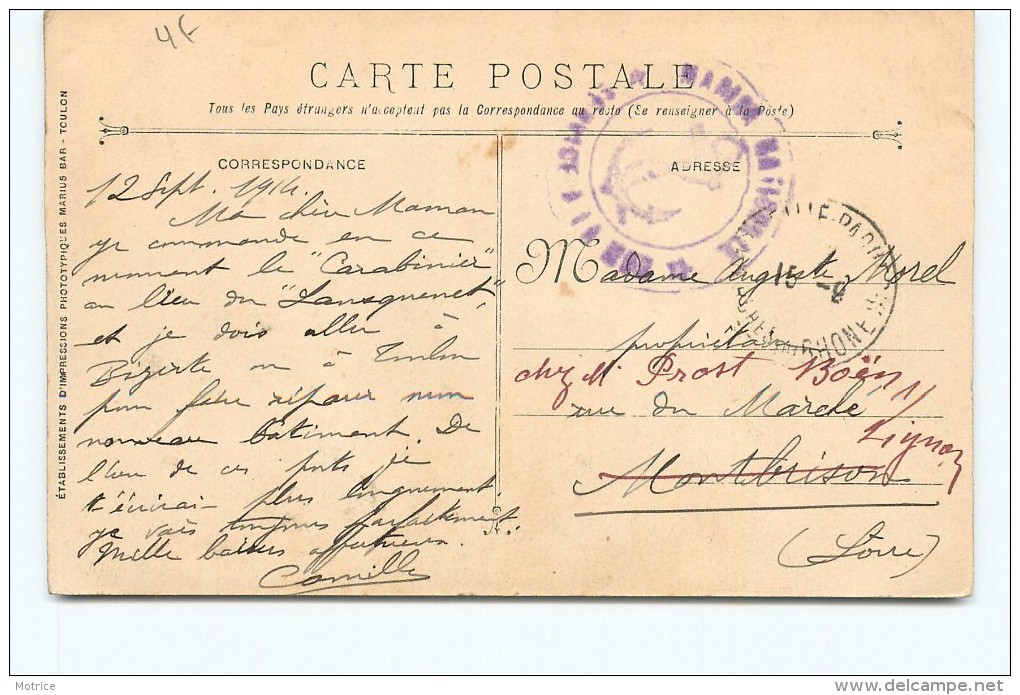 4f
CARTE POSTALE
Tous les Pays étrangers n'acceptent pas la Correspondance au recto (Se renseigner à la Poste)
CORRESPONDANCE
ADRESSE
ÉTABLISSEMENTS D'IMPRESSIONS PHOTOTYPIQUES MARIUS BAR - TOULON
12 Sept. 1914.
Ma chère Maman
je commande en ce
moment le "Carabinier"
au lieu du "Lansquenet",
et je dois aller à
Bizerte ou à Toulon
pour faire réparer mon
nouveau bâtiment. De
l'un de ces ports je
t'écrirai plus longuement
je vais toujours parfaitement.
Mille baisers affectueux.
Camille
Madame Auguste Morel
propriétaire
chez M. Prost Boën s/
rue du Marché Lignon
Montbrison
(Loire)
15 -9
RHONE
Motrice
delcampe.net